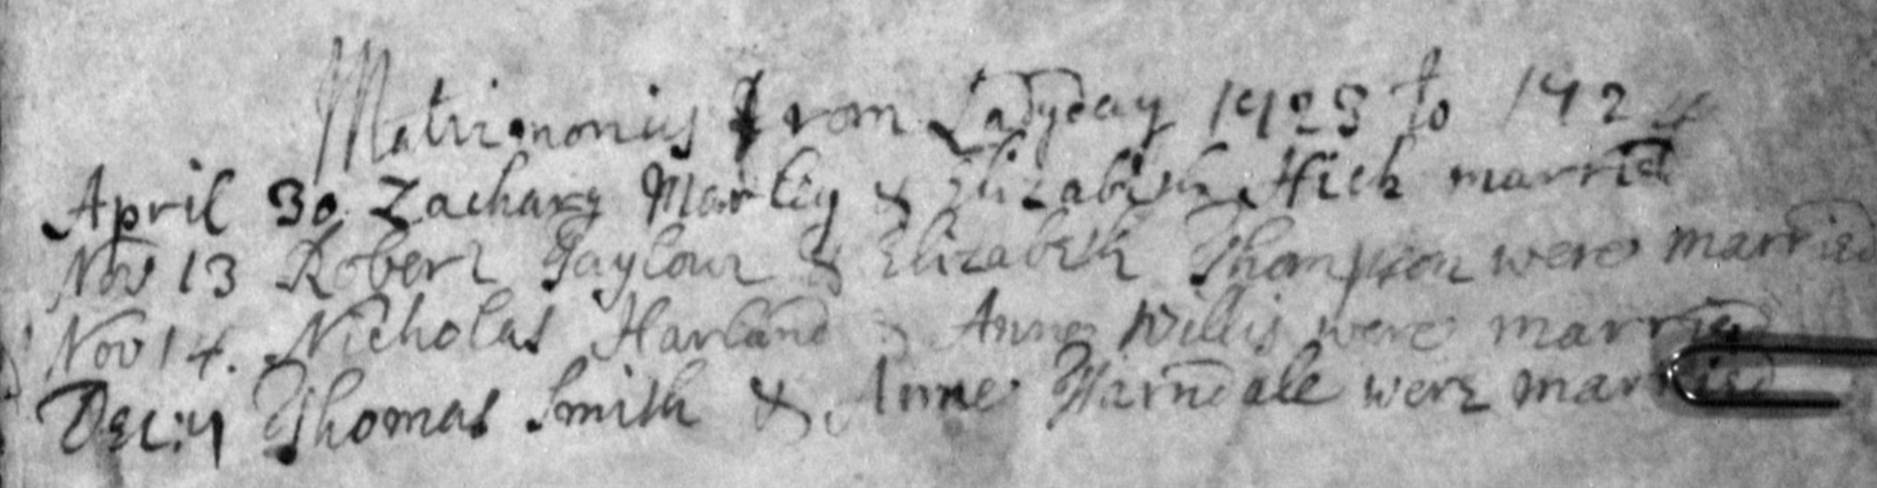 Matrimonies from Ladyday 1723 to 1724
April 30 Zachary Marley & Elizabeth Hick married
Nov 13 Robert Taylour & Elizabeth Thompson were married
Nov 14. Nicholas Harland & Anne Willis were married
Dec: 7 Thomas Smith & Anne were married